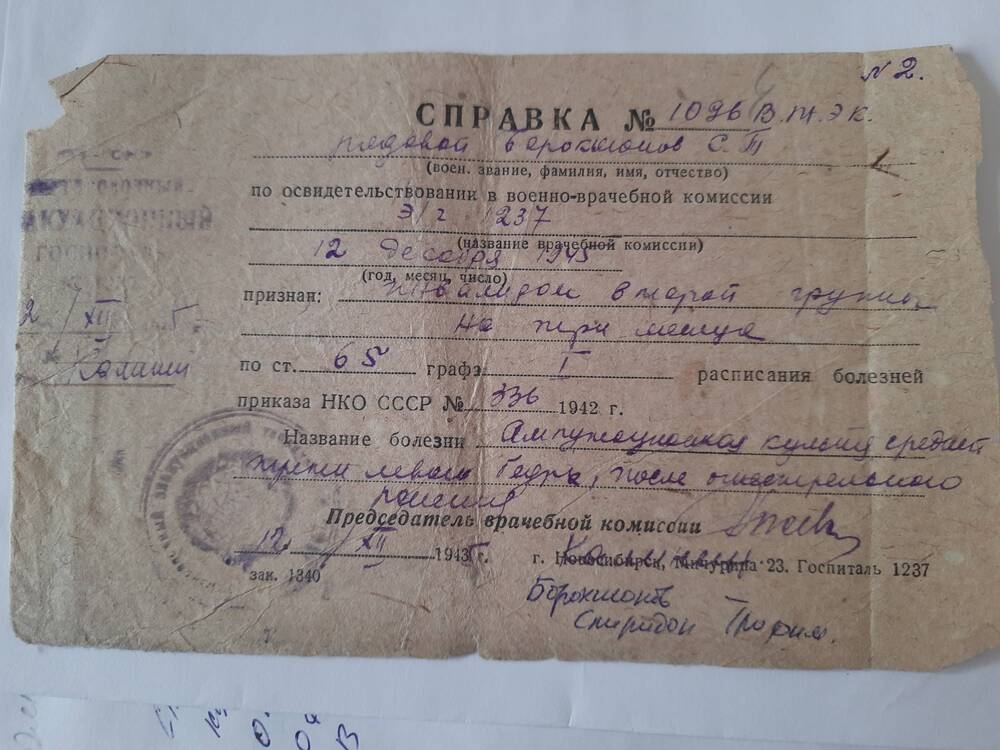 N 2.
СПРАВКА № 1096 В.Т.Э К.
рядовой С. Т
(воен. звание, фамилия, имя, отчество)
по освидетельствовании в военно-врачебной комиссии
Э/г 1237
(название врачебной комиссии)
12 декабря 1945
(год, месяц, число)
признан: инвалидом второй группы
на три месяца
2 / XII г.
по ст. 65 графэ I расписания болезней
приказа НКО СССР № 336 1942 г.
Название болезни Ампутационная культя средней
трети левого бедра, после огнестрельного
ранения
Председатель врачебной комиссии
12 / XII 1945 г.
г. Новосибирск, Мичурина 23. Госпиталь 1237
зак. 1340
Спиридон Трофим.